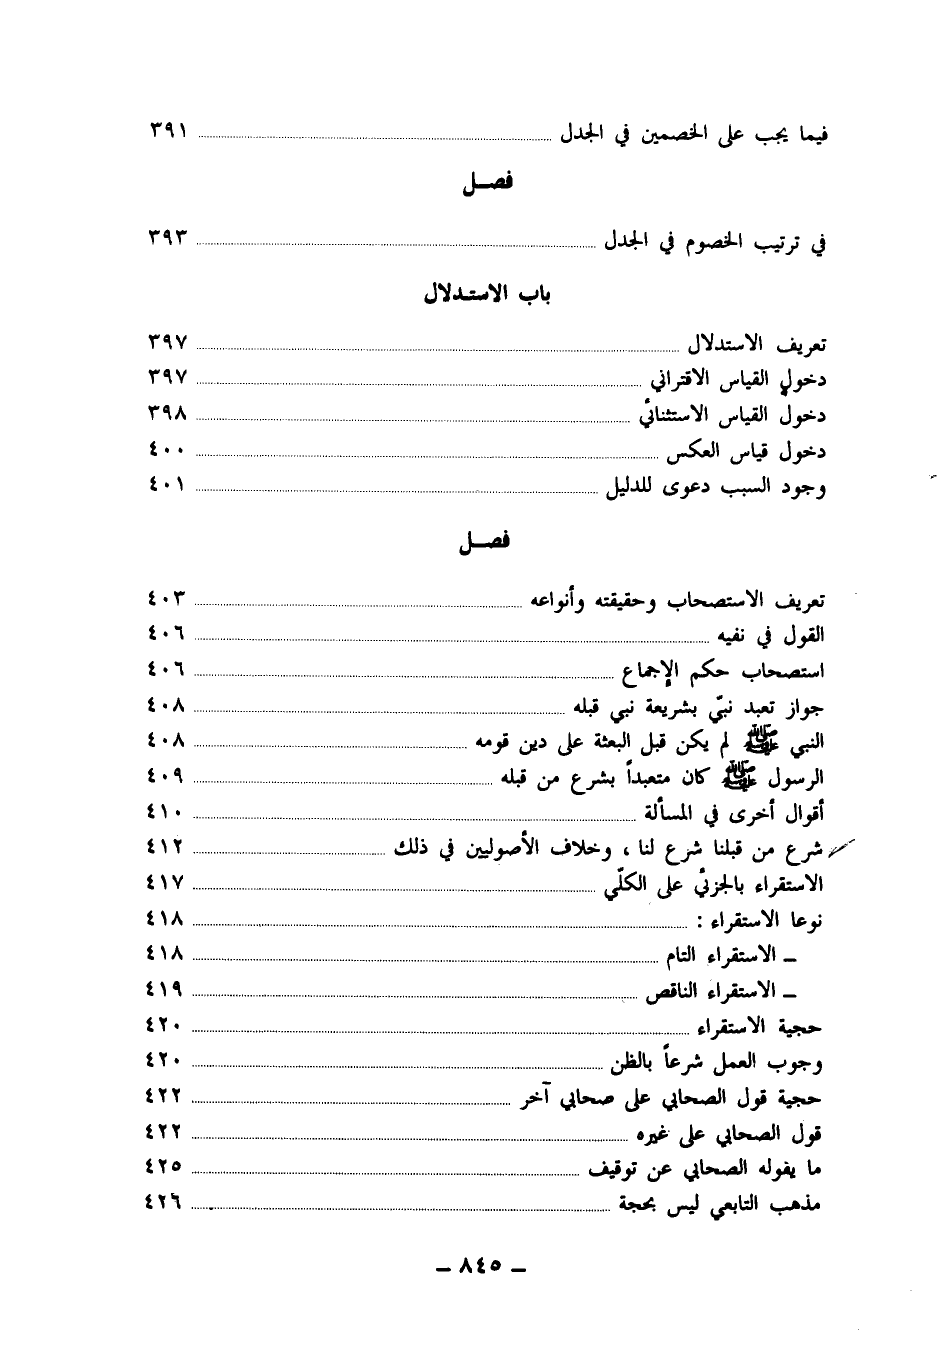 فيما يجب على الخصمين في الجدل ... ٣٩١
فصـل
في ترتيب الخصوم في الجدل ... ٣٩٣
باب الاستـدلال
تعريف الاستدلال ... ٣٩٧
دخول القياس الاقتراني ... ٣٩٧
دخول القياس الاستثنائي ... ٣٩٨
دخول قياس العكس ... ٤٠٠
وجود السبب دعوى للدليل ... ٤٠١
فصـل
تعريف الاستصحاب وحقيقته وأنواعه ... ٤٠٣
القول في نفيه ... ٤٠٦
استصحاب حكم الإجماع ... ٤٠٦
جواز تعبد نبيّ بشريعة نبي قبله ... ٤٠٨
النبي ﷺ لم يكن قبل البعثة على دين قومه ... ٤٠٨
الرسول ﷺ كان متعبداً بشرع من قبله ... ٤٠٩
أقوال أخرى في المسألة ... ٤١٠
شرع من قبلنا شرع لنا ، وخلاف الأصوليين في ذلك ... ٤١٢
الاستقراء بالجزئي على الكلّي ... ٤١٧
نوعا الاستقراء : ... ٤١٨
ــ الاستقراء التام ... ٤١٨
ــ الاستقراء الناقص ... ٤١٩
حجية الاستقراء ... ٤٢٠
وجوب العمل شرعاً بالظن ... ٤٢٠
حجية قول الصحابي على صحابي آخر ... ٤٢٢
قول الصحابي على غيره ... ٤٢٢
ما يفوله الصحابي عن توقيف ... ٤٢٥
مذهب التابعي ليس بحجة ... ٤٢٦
ــ ٨٤٥ ــ